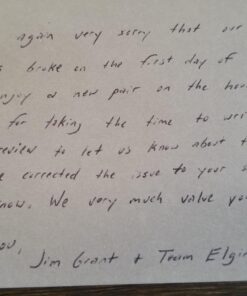 again very sorry that our
broke on the first day of
enjoy a new pair on the hou
for taking the time to writ
review to let us know about t
e corrected the issue to your s
now. We very much value yo
ou,
Jim Grant + Team Elgin